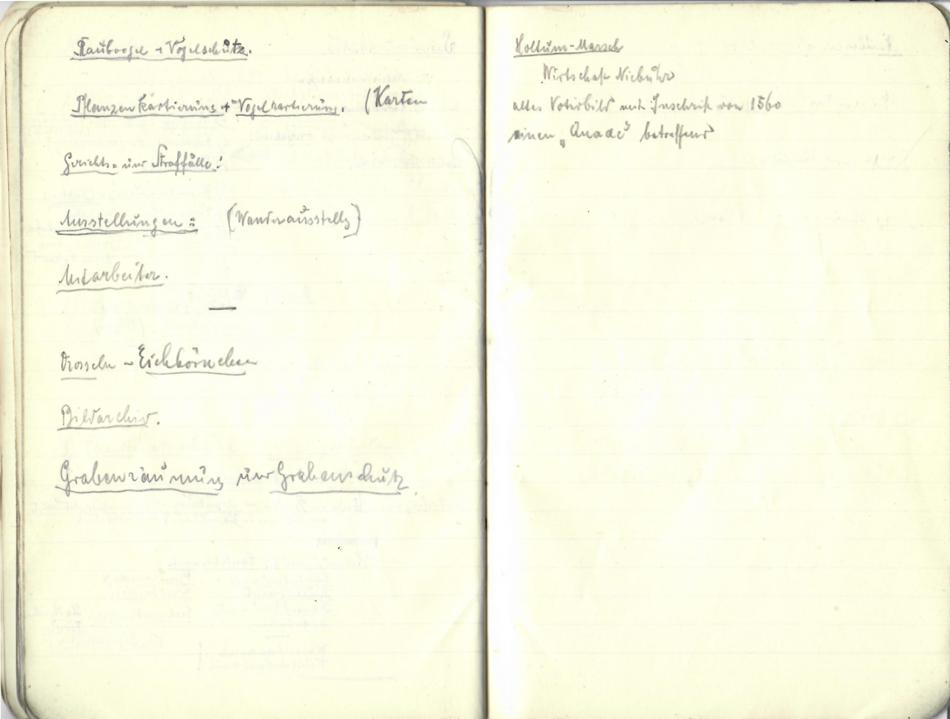 Raubvogel + Vogelschutz.
Pflanzenkartierung + Vogelkartierung. (Karten
Gerichts- und Straffälle!
Ausstellungen: (Wanderausstellg)
Mitarbeiter.
—
Drosseln – Eichhörnchen
Bildarchiv.
Grabenräumung und Grabenschutz.
Holtum-Marsch
Wirtschaft Niebuhr
altes Votivbild mit Inschrift von 1560
einen „Quade" betreffend